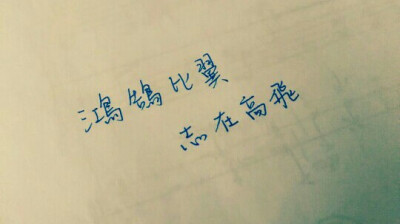 鴻鵠比翼
志在高飛